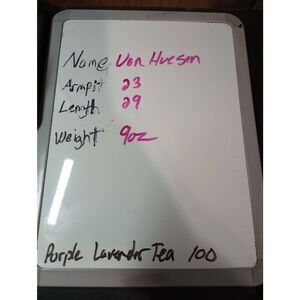 Name Von Hueson
Armpit 23
Length 29
Weight 9oz
Purple Lavender Tea 100